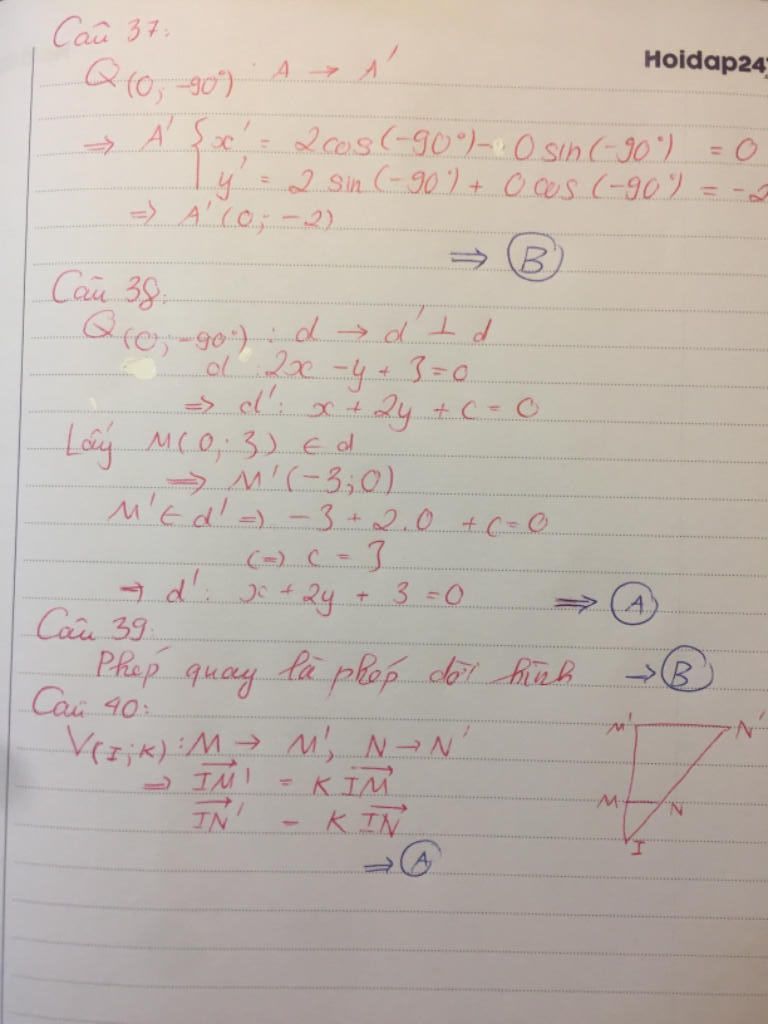 Câu 37:
Hoidap247
Q(O; -90°) : A → A'
⇒ A' { x' = 2cos(-90°) - 0 sin(-90°) = 0
y' = 2 sin(-90°) + 0 cos(-90°) = -2
⇒ A'(0; -2)
⇒ B
Câu 38:
Q(O; -90°) : d → d' ⊥ d
d 2x - y + 3 = 0
⇒ d': x + 2y + c = 0
Lấy M(0; 3) ∈ d
⇒ M'(-3; 0)
M' ∈ d' ⇒ -3 + 2.0 + c = 0
(=) c = 3
⇒ d': x + 2y + 3 = 0 ⇒ A
Câu 39:
Phép quay là phép dời hình → B
Câu 40:
V(I; K) : M → M', N → N'
⇒ IM' = K IM
IN' = K IN
⇒ A
M' N'
M N
I